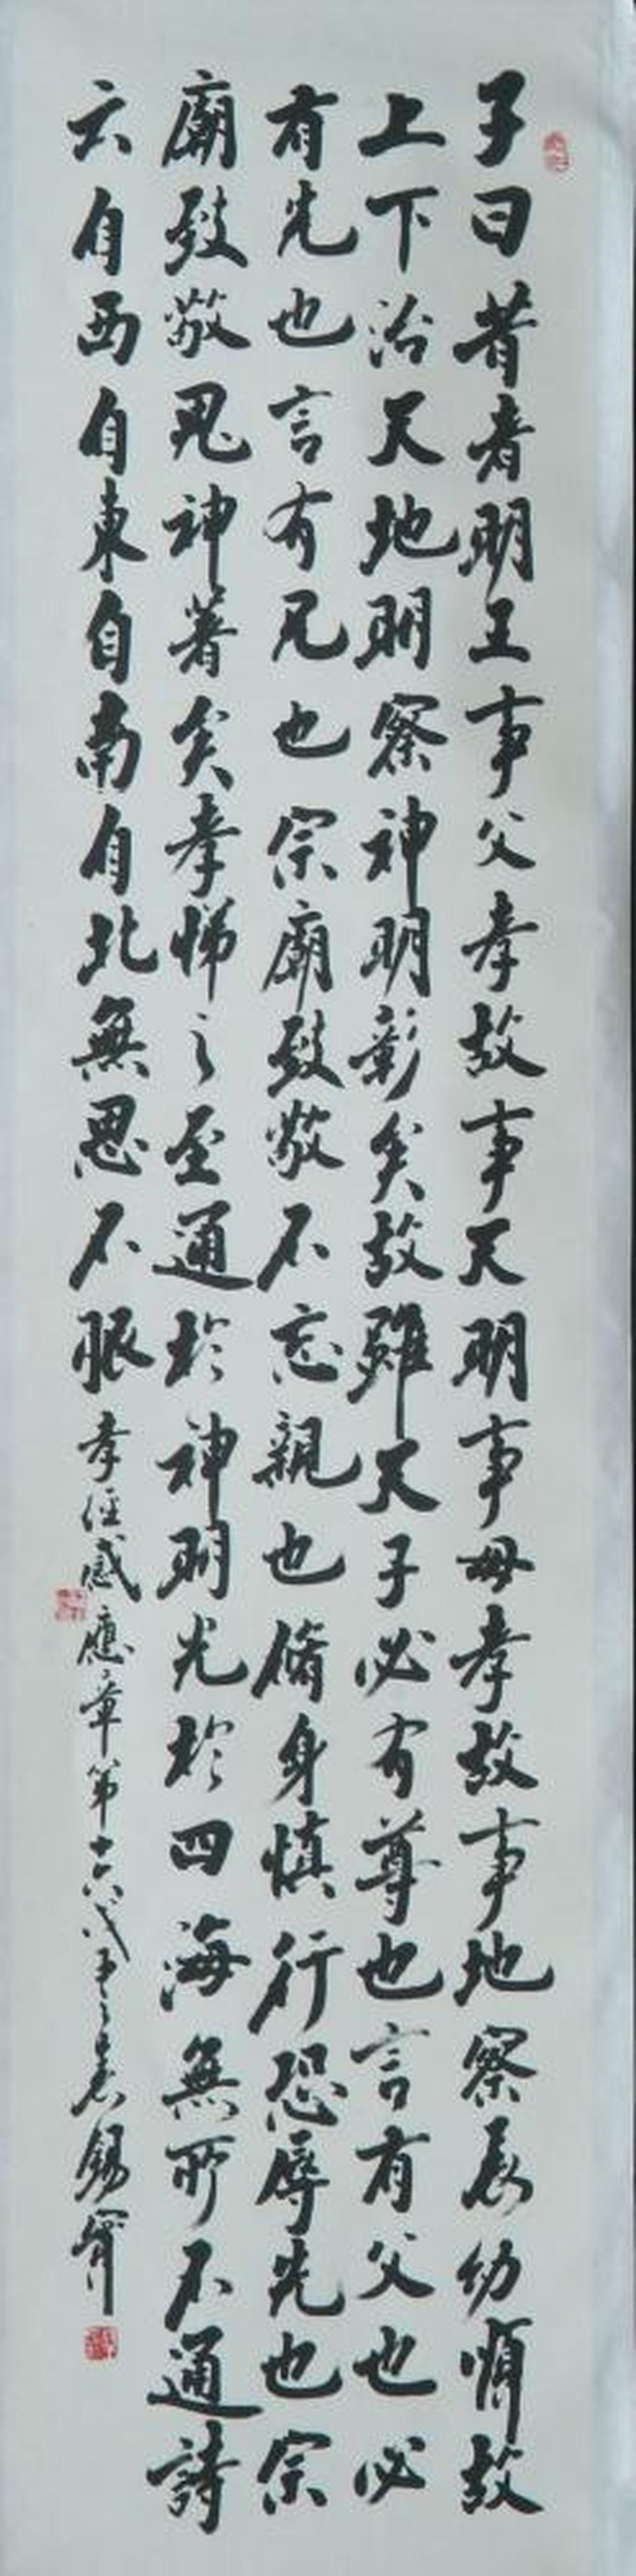 子曰昔者明王事父孝故事天明事母孝故事地察長幼順故
上下治天地明察神明彰矣故雖天子必有尊也言有父也必
有先也言有兄也宗廟致敬不忘親也脩身慎行恐辱先也宗
廟致敬鬼神著矣孝悌之至通於神明光於四海無所不通詩
云自西自東自南自北無思不服孝經感應章第十六戊子之春錫寧